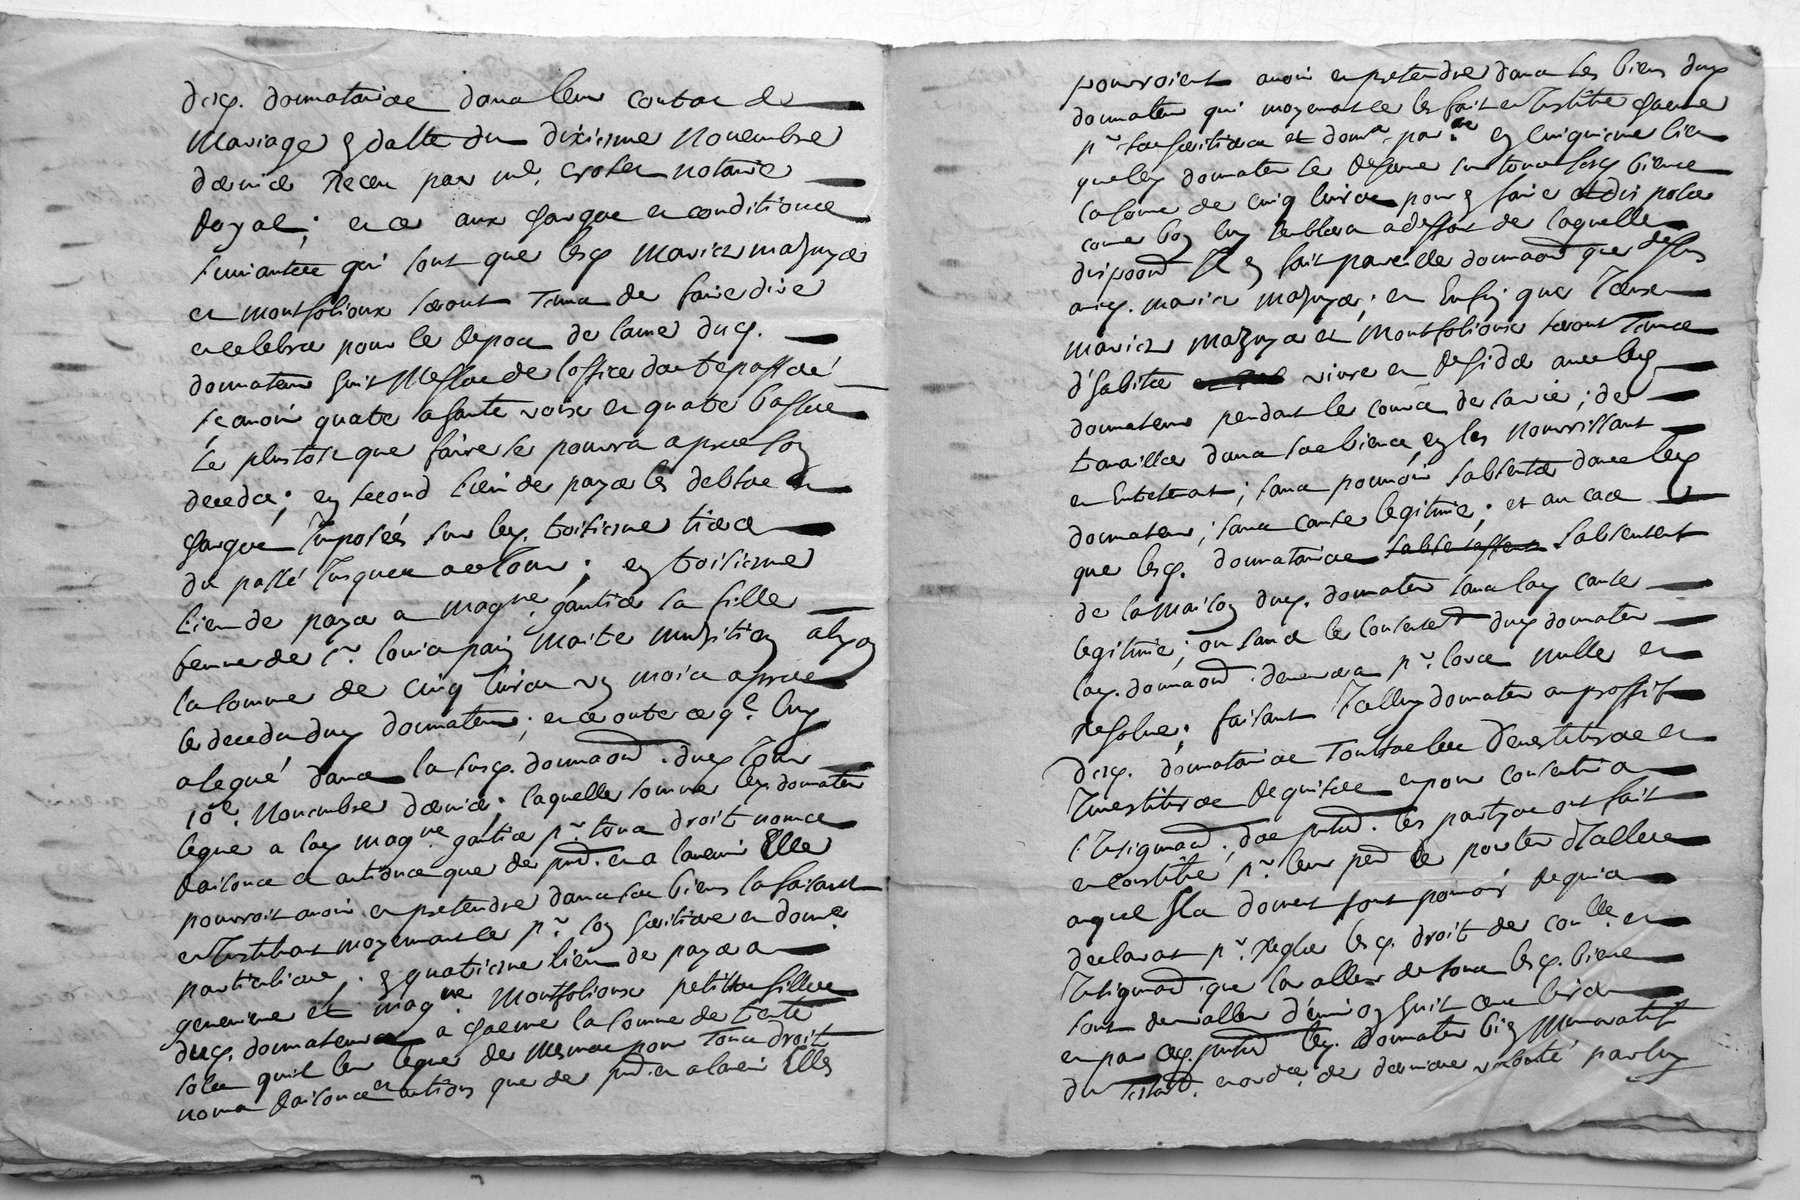 desq. donnataires dans leur contrac de
Mariage en datte du dixiesme Novembre
dernier Receu par me. notaire
Royal; et ce aux charges et conditions
suivantes qui sont que lesq mariés mazuyer
et montfolioux seront tenus de faire dire
et celebrer pour le Repos de lame dud.
donnateur huit Messes de loffice des trepassés
scavoir quatre a haute voix et quatre basses
Le plustost que faire se pourra apres son
deceds; en second lieu de payer les debtes et
charges Imposées sur led. troisiesme tiers
du passé Jusques a ce Jour; en troisiesme
lieu de payer a magne. gautier sa fille
femme de sr. Louis maitre
la somme de cinq livres un mois apres
le deceds dud donnateur, et ce outre ce ql. luy
a legué dans la susd. donnaon. dud Jour
10e. Novembre dernier; laquelle somme led. donnateur
legue a lad magne gautier pr. tous droits noms
Raisons et actions que de pnt. et a lavenir Elle
pourroit avoir et pretendre dans ses biens la faisant
et Instituant moyennant ce pr. son heritiere et donnre.
particuliere. en quatriesme lieu de payer a
genevieve et magne Montfolioux petites filles
dud. donnateur a chacune la somme de trente
sols quil leur legue de mesme pour tous droits
noms Raisons et actions que de pnt. et a lavenir Elles
pourroient avoir et pretendre dans les biens dud
donnateur qui moyenant ce les fait et Institue chacune
pr. ses heritieres et donnres. par.res en cinquiesme lieu
que led donnateur se Reserve sur tous sesd biens
la somme de cinq livres pour en faire et disposer
comme bon luy semblera a deffaut de laquelle
dispoon Il en fait pareille donnaon que dessus
ausd. mariés mazuyer; et Enfin que Iceux
mariés mazuyer et Montfolioux seront tenus
d'habiter vivre et Resider avec led
donnateur pendant le cours de sa vie; de
travailler dans ses biens, en les nourrissant
et Entretenant; sans pouvoir sabsenter davec led
donnateur; sans cause legitime; et au cas
que lesd. donnataires sabsentent
de la maison dud. donnateur sans lad cause
legitime; ou sans le consentemt dud donnateur
lad. donnaon. demeurera pr. lors nulle et
Resolue; faisant Icelluy donnateur au proffit
desd. donnataires toutes les Devestitures et
Investitures Requises et pour consentir a
l'Insignuaon, des pntes. les partyes ont fait
et constitué pr. leur pr. le porteur dIcelles
auquel Ils donnent tout pouvoir Requis
declarant pr. Regler lesd. droits de conlle. et
Insignuaon. que la valleur de tous lesd. biens
sont de valleur denviron huit cens livres
et par ces pntes led. donnateur bien
du testamt. et ordce. de derniere volonté par luy